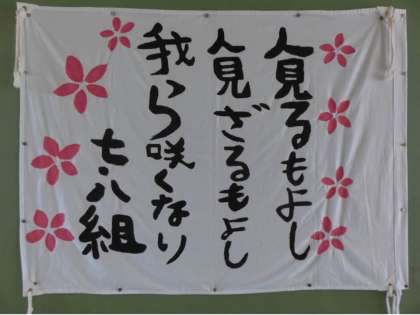 人見るもよし
人見ざるもよし
我ら咲くなり
七八組